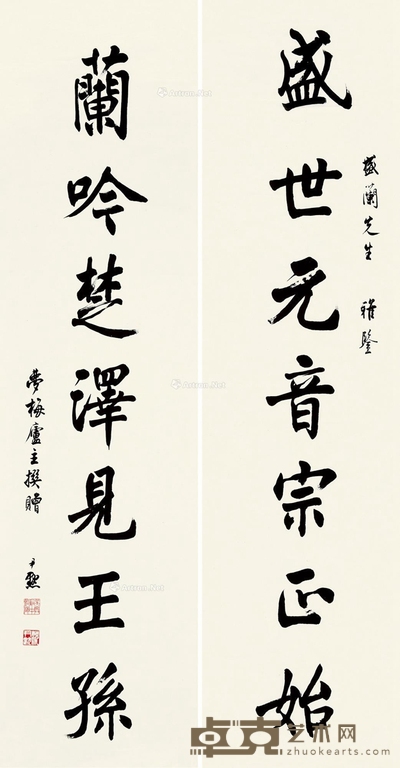 盛蘭先生 雅鑒
盛世元音宗正始
蘭吟楚澤見王孫
夢梅廬主撰贈
尹默
卓克艺术网
zhuokearts.com